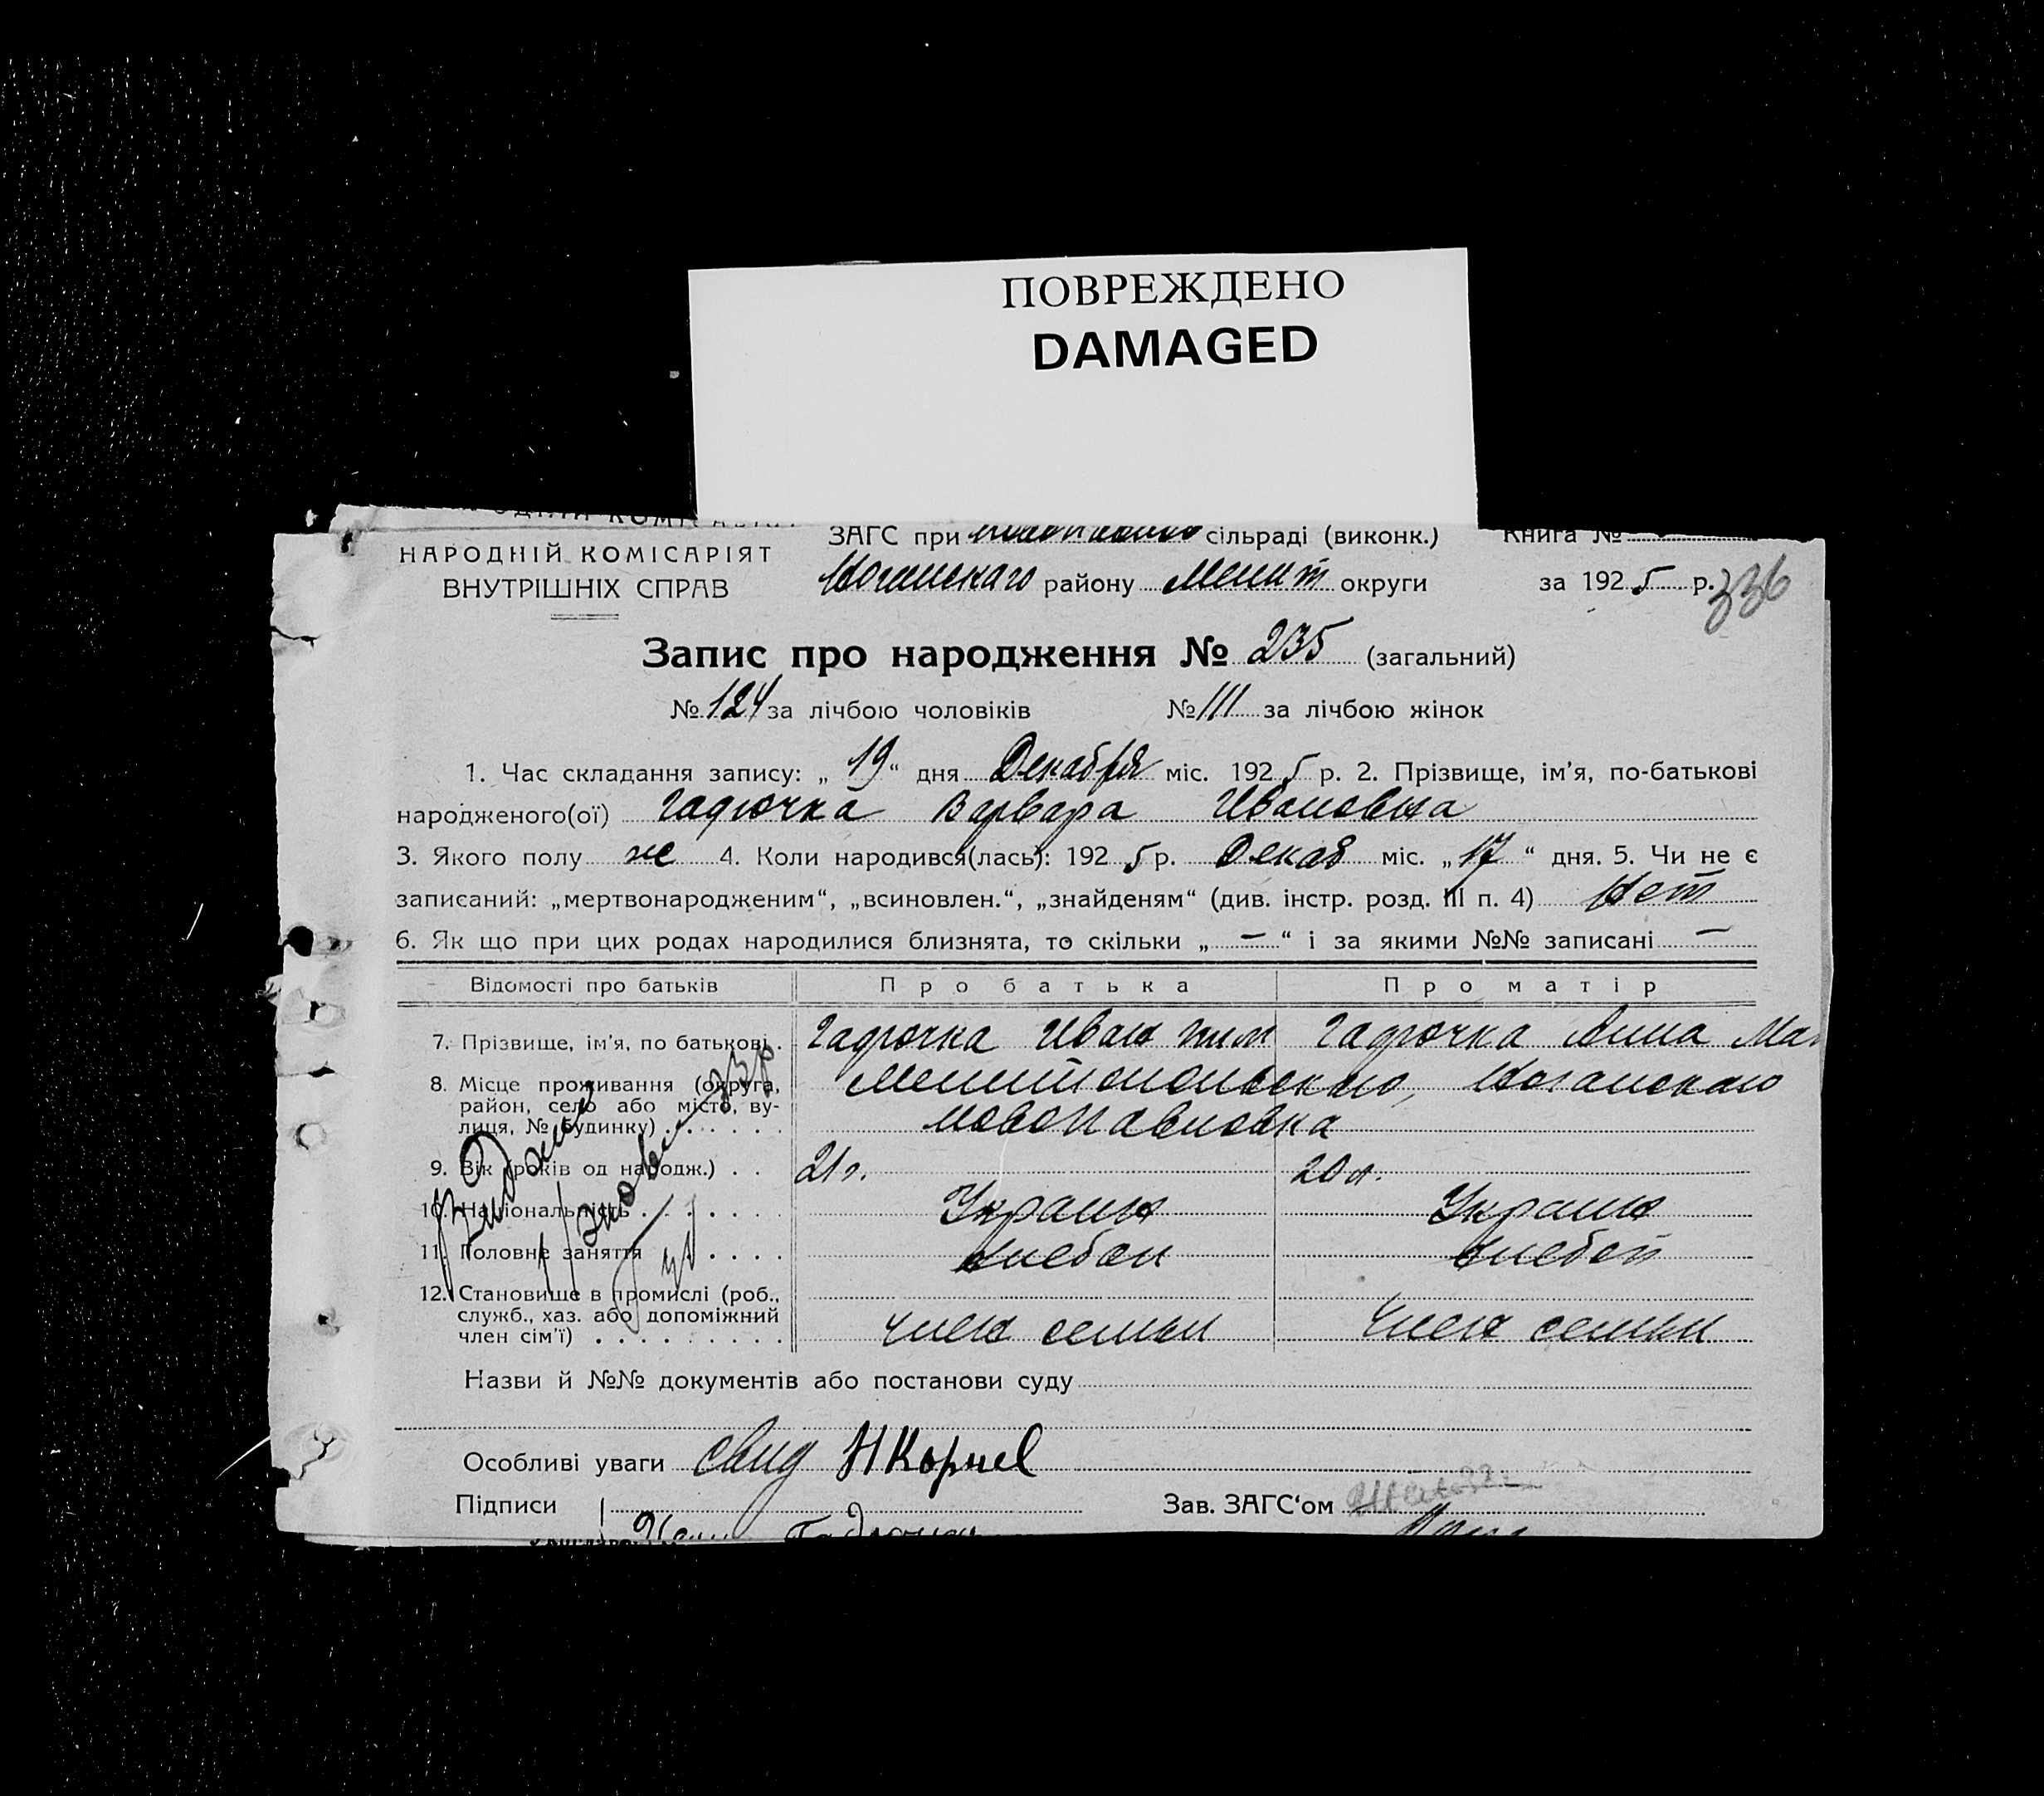 ПОВРЕЖДЕНО
DAMAGED
НАРОДНІЙ КОМІСАРІЯТ
ВНУТРІШНІХ СПРАВ
ЗАГС при сільраді (виконк.) Книга №
Ногайскаго району Мелит округи за 1925 р. 336
Запис про народження № 235 (загальний)
№ 124 за лічбою чоловіків № 111 за лічбою жінок
1. Час складання запису: „ 19 “ дня Декабря міс. 1925 р. 2. Прізвище, ім’я, по-батькові
народженого(ої) Гадючка Варвара Ивановна
3. Якого полу ж 4. Коли народився(лась): 1925 р. Декаб міс. „ 17 “ дня. 5. Чи не є
записаний: „мертвонародженим“, „всиновлен.“, „знайденям“ (див. інстр. розд. III п. 4) Нет
6. Як що при цих родах народилися близнята, то скільки „ — “ і за якими №№ записані —
Відомості про батьків Про батька Про матір
7. Прізвище, ім’я, по батькові . Гадючка Иван Тим Гадючка Анна
8. Місце проживання (округа, Мелитопольскаго, Ногайскаго
район, село або місто, ву-
лиця, № будинку) . . . . . . Новопавловка
9. Вік (років од народж.) . . 21 г. 20 л.
10. Національність . . . . . . . Украин Украин
11. Головне заняття . . . . . Хлебоп Хлебоп
12. Становище в промислі (роб.,
служб., хаз. або допоміжний
член сім’ї) . . . . . . . . . член семьи член семьи
Назви й №№ документів або постанови суду
Особливі уваги свид Н Корнел
Підписи Зав. ЗАГС‘ом